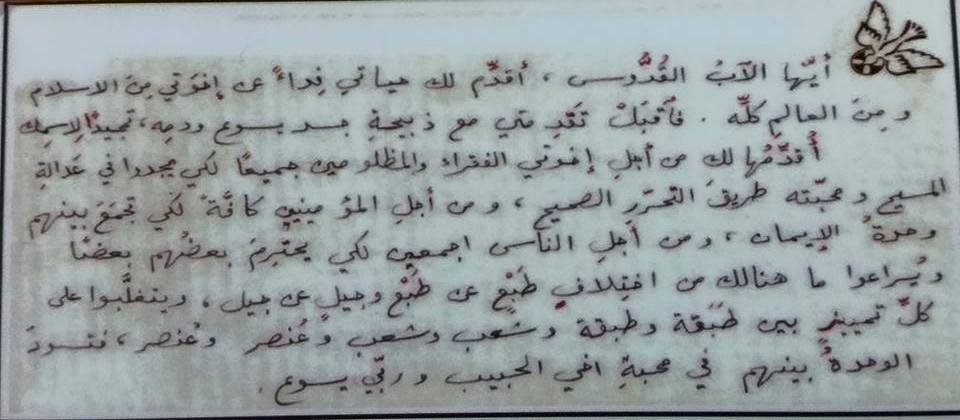 أيّها الآبُ القُدُّوس ، أقدِّم لك حياتي فِداءً عن إخوَتي مِنَ الاسلام
ومِنَ العالمِ كلِّه . فأقبَلْ تَقدِمتي مع ذبيحةِ جسد يسوع ودمِه، تمجيدًا لإسمِك
أُقدِّمُها لك من أجلِ إخوتي الفقراء والمظلومين جميعًا لكي يجدوا في عَدالةِ
المسيح ومحبّته طريقَ التحرّرِ الصحيح ، ومن أجلِ المؤمنين كافَّةً لكي تجمَعَ بينهم
وحدةُ الإيمان ، ومن أجلِ الناس اجمعين لكي يحتَرِمَ بعضُهم بعضًا
ويُراعوا ما هنالك من اختِلافِ طَبْعٍ عن طَبْعٍ وجيلٍ عن جيل ، ويتغلَّبوا على
كلِّ تمييزٍ بين طَبَقة وطبقة وشعب وشعب وعُنصر وعُنصر ، فتسودَ
الوحدةُ بينهم في محبةِ اخي الحبيب وربّي يسوع .